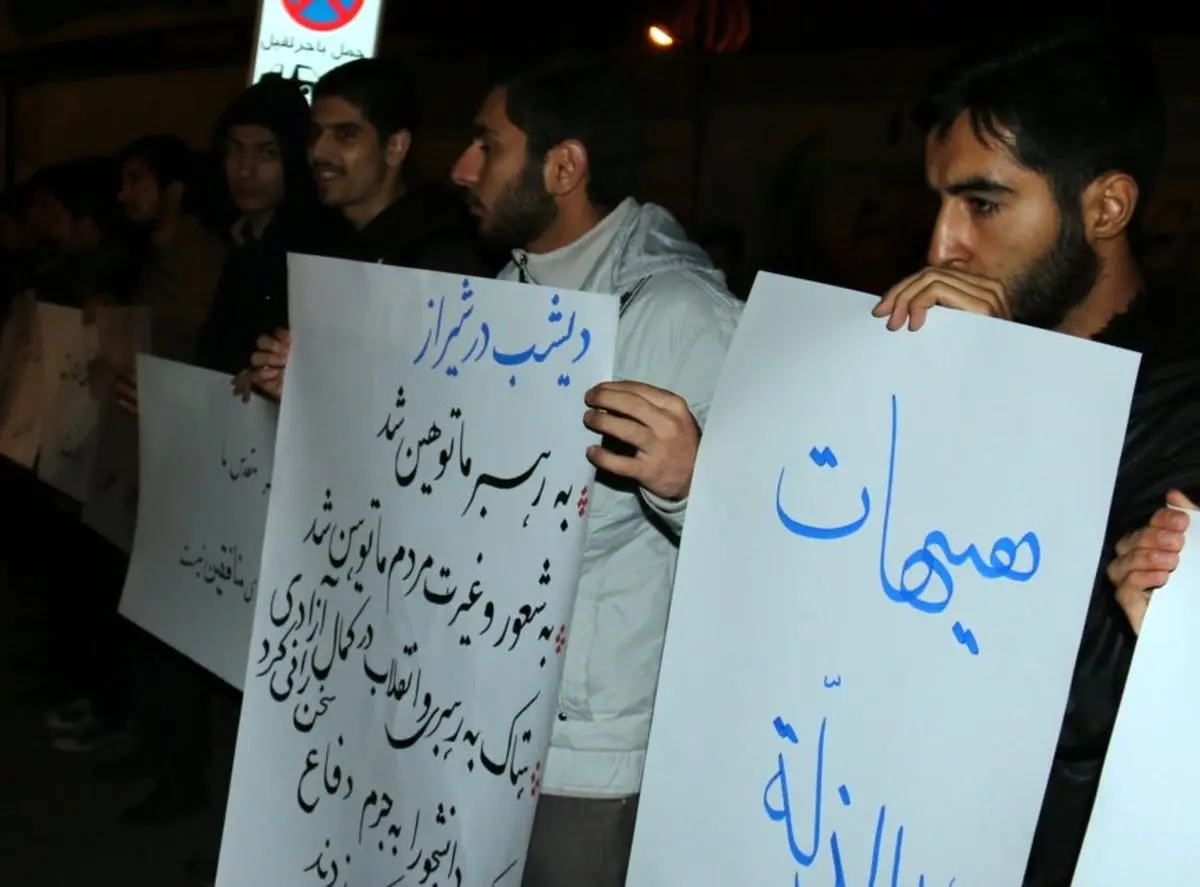 حمل با جرثقیل
دیشب در شیراز
به رهبر ما توهین شد
به شعور و غیرت مردم ما توهین شد
هتاک به رهبری و انقلاب در کمال آزادی
سخنرانی کرد
دانشجو را به جرم دفاع
زدند
هیهات
الذلّة
مقدس ما
منافقین نیست